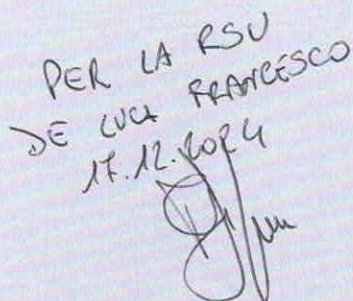 PER LA RSU
DE LUCA FRANCESCO
17.12.2024